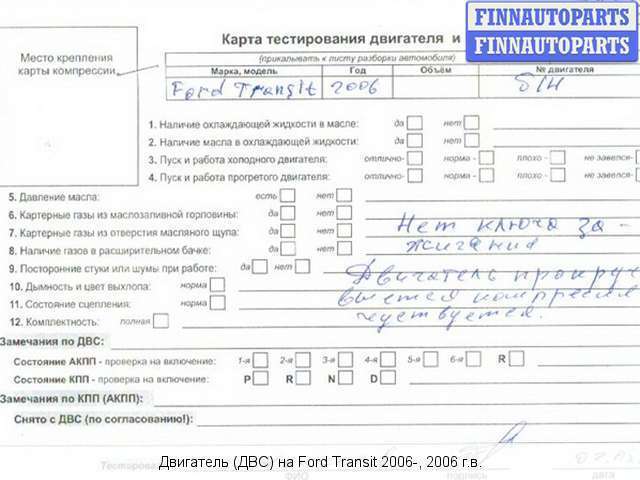 FINNAUTOPARTS
FINNAUTOPARTS
Карта тестирования двигателя и
(прикалывать к листу разборки автомобиля)
Место крепления
карты компрессии
Марка, модель Год Объём № двигателя
Ford Transit 2006 б/н
1. Наличие охлаждающей жидкости в масле: да нет
2. Наличие масла в охлаждающей жидкости: да нет
3. Пуск и работа холодного двигателя: отлично- норма - плохо - не завелся-
4. Пуск и работа прогретого двигателя: отлично- норма - плохо - не завелся-
5. Давление масла: есть нет
6. Картерные газы из маслозаливной горловины: да нет
7. Картерные газы из отверстия масляного щупа: да нет
8. Наличие газов в расширительном бачке: да нет
9. Посторонние стуки или шумы при работе: да нет
10. Дымность и цвет выхлопа: норма
11. Состояние сцепления: норма
12. Комплектность: полная
Нет ключа за-
жигания
Двигатель прокру
вается компрессия
чувствуется.
Замечания по ДВС:
Состояние АКПП - проверка на включение: 1-я 2-я 3-я 4-я 5-я 6-я R
Состояние КПП - проверка на включение: P R N D
Замечания по КПП (АКПП):
Снято с ДВС (по согласованию!):
Тестировал
ФИО подпись дата
Двигатель (ДВС) на Ford Transit 2006-, 2006 г.в.